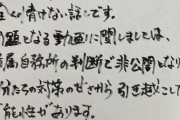 全く情けない話です。
問題となる動画に関しましては、
属自務所の判断で非公開となり
分たちの対策の甘さから引き越こした
能性があります。